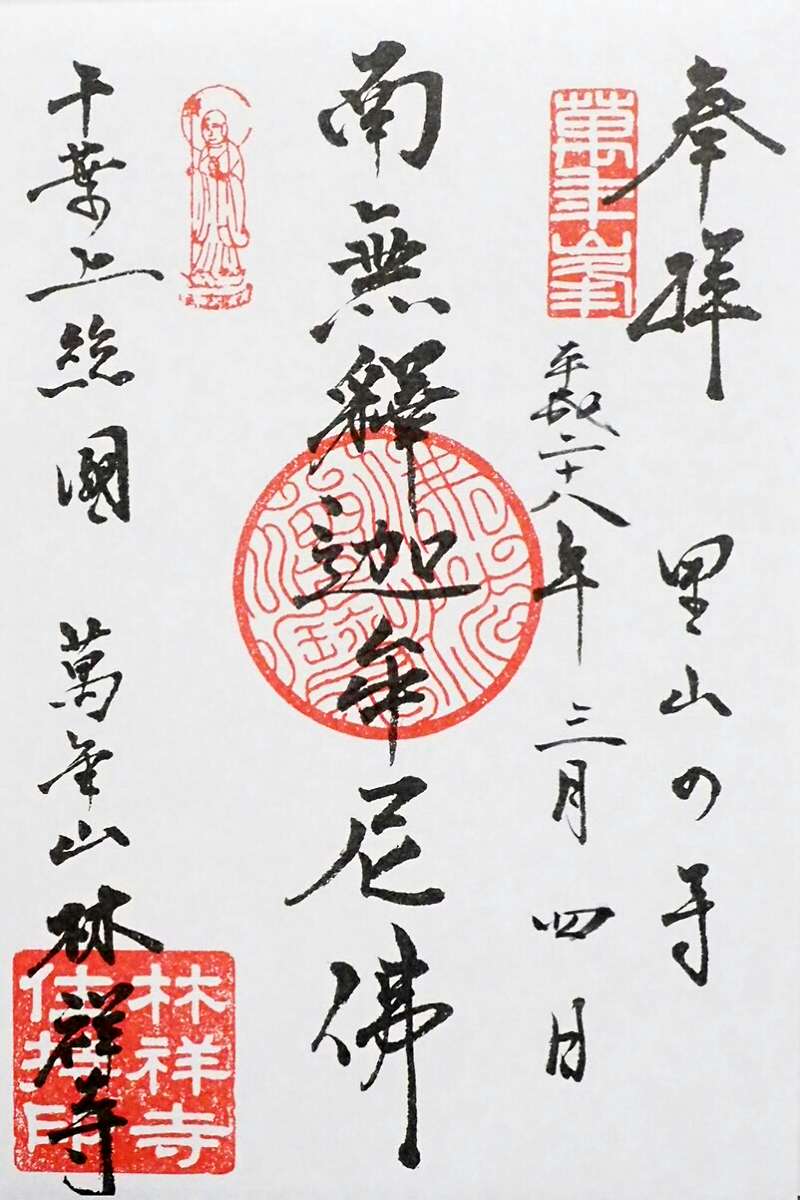 奉拝
里山の寺
萬年峯
平成二十八年三月四日
南無釋迦牟尼佛
千葉上総國
萬年山林祥寺
林祥寺
住持印